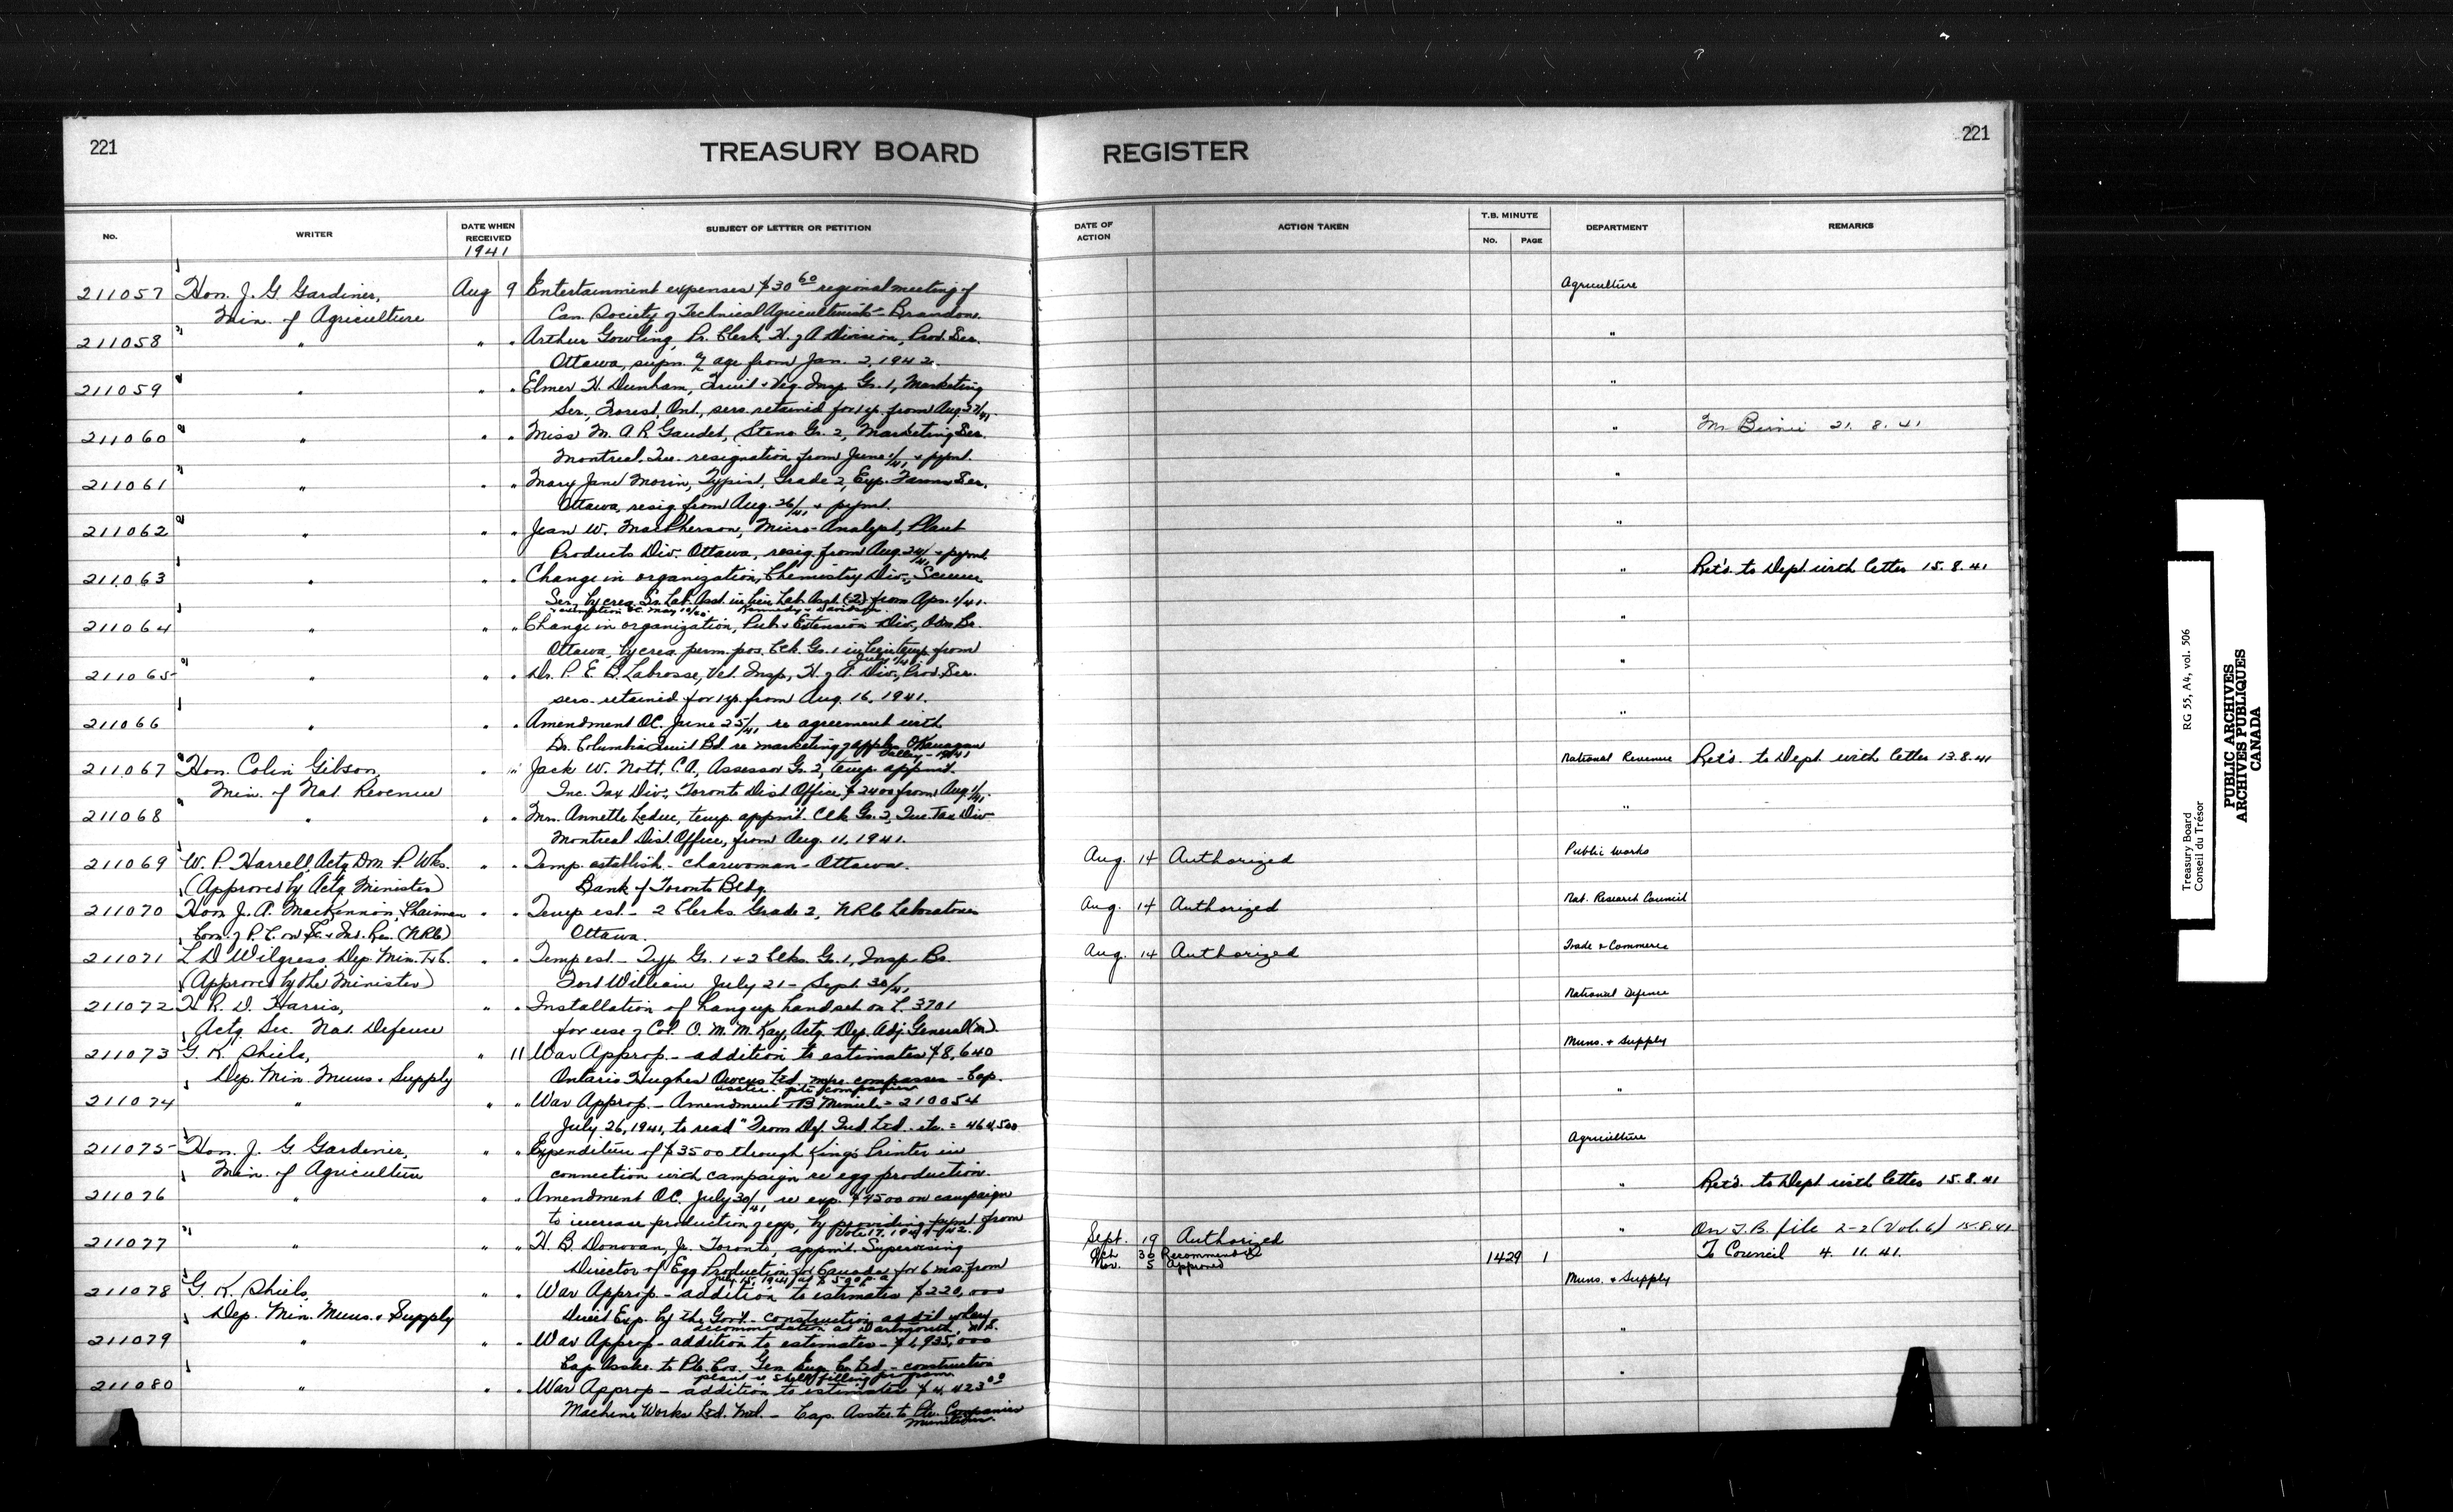 221
TREASURY BOARD REGISTER
221
No. WRITER DATE WHEN RECEIVED SUBJECT OF LETTER OR PETITION DATE OF ACTION ACTION TAKEN T.B. MINUTE No. PAGE DEPARTMENT REMARKS
1941
211057 Hon. J. G. Gardiner, Aug 9 Entertainment expenses $30 60 regional meeting of Agriculture
Min. of Agriculture Can. Society of Technical Agriculturists - Brandon.
211058 " " " Arthur Gowling, Pr. Clerk, H. of A Division, Prod. Ser. "
Ottawa, supn. age from Jan. 2, 1942.
211059 " " " Elmer H. Dunham, Fruit & Veg. Insp. Gr. 1, Marketing "
Ser., Forest, Ont., sers. retained for 1 yr. from Aug. 27/41.
211060 " " " Miss M. A R Gaudet, Steno Gr. 2, Marketing Ser. " Mr Birnie 21. 8. 41
Montreal. Que. resignation from June 1/41 & pymt.
211061 " " " Mary Jane Morin, Typist, Grade 2, Exp. Farms Ser. "
Ottawa, resig from Aug. 26/41 & pymt.
211062 " " " Jean W. MacPherson, Micro-Analyst, Plant "
Products Div. Ottawa, resig. from Aug. 24/41 & pymt
211063 " " " Change in organization, Chemistry Div., Science " Ret'd. to Dept. with letter 15.8.41
Ser. by crea. Sr. Lab. Asst. in lieu Lab. Asst. (2) from Apr. 1/41.
Kennedy & Davidson
211064 " " " Change in organization, Pub. & Extension Div., Adm Br. "
Ottawa, by crea. perm. pos. Clk. Gr. 1 in lieu temp. from
July 1/41
211065 " " " Dr. P. E. B. Labrosse, Vet. Insp., H. of A. Div., Prod. Ser. "
sers. retained for 1 yr. from Aug. 16, 1941.
211066 " " " Amendment OC. June 25/41 re agreement with "
Br. Columbia Fruit Bd. re marketing of apples Okanagan
Valley - 1941
211067 Hon. Colin Gibson, " " Jack W. Nott, C.A., Assessor Gr. 2, temp. appmt. National Revenue Ret'd. to Dept. with letter 13.8.41
Min. of Nat. Revenue Inc. Tax Div., Toronto Dist Office, $2400 from Aug 1/41.
211068 " " " Mrs. Annette Leduc, temp. appmt. Clk Gr. 2, Inc. Tax Div "
Montreal Dist. Office, from Aug. 11, 1941.
211069 W. P. Harrell, Actg Dm. P. Wks. " " Temp. establish. - charwoman - Ottawa. Aug. 14 Authorized Public Works
(Approved by Actg Minister) Bank of Toronto Bldg.
211070 Hon J. A. MacKinnon, Chairman " " Temp est. - 2 Clerks Grade 2, NRC Laboratories Aug. 14 Authorized Nat. Research Council
Com. of P. C. on Sc. & Ind. Res. (NRC) Ottawa.
211071 L D Wilgress, Dep. Min. T & C. " " Temp est. - Typ Gr. 1 & 2 Clks. Gr. 1, Insp. Br. Aug. 14 Authorized Trade & Commerce
(Approved by the Minister) Fort William July 21 - Sept 30/41
211072 H R. D. Harris, " " Installation of hangup handset on L. 3701 National Defence
Actg Sec. Nat. Defence for use of Col. O. M. M. Kay, Actg. Dep. Adj. General (m).
211073 G. K. Shiels, " 11 War Approp. - addition to estimates $8,640 Muns. & Supply
Dep. Min. Muns. & Supply Ontario Hughes Owens Ltd. mfre. compasses - Cap.
asstce. pte companies
211074 " " " War Approp. - Amendment TB Minute = 210054 "
July 26, 1941, to read "From Def. Ind. Ltd. etc. = 464,500
211075 Hon. J. G. Gardiner, " " Expenditure of $3500 through King's Printer in Agriculture
Min. of Agriculture connection with campaign re egg production.
211076 " " " Amendment OC. July 30/41 re exp. $4500 on campaign " Ret'd. to Dept with letter 15.8.41
to increase production of eggs, by providing pymt. from
Vote 17, 1941-42.
211077 " " " H. B. Donovan, Jr. Toronto, appmt. Supervising Sept. 19 Authorized " On T.B. file 2-2 (Vol. 6) 15.8.41
Director of Egg Production for Canada for 6 mos. from Oct. 30 Recommended 1429 1 To Council 4. 11. 41.
July 15, 1941 Nov. 5 Approved
211078 G. K. Shiels, " " War Approp. - addition to estimates $220,000 Muns. & Supply
Dep. Min. Muns. & Supply Direct Exp. by the Govt. - construction
accommodation at Dartmouth, N.S.
211079 " " " War Approp - addition to estimates - $1,935,000 "
Cap. Asstce. to Pte. Cos. Gen. Eng. Co. Ltd. - construction
plant re shell filling program
211080 " " " War Approp - addition to estimates $4,423 00 "
Machine Works Ltd. Mtl. - Cap. Asstce to Pte. Companies
Munitions.
Treasury Board RG 55, A4, vol. 506
Conseil du Trésor
PUBLIC ARCHIVES
ARCHIVES PUBLIQUES
CANADA